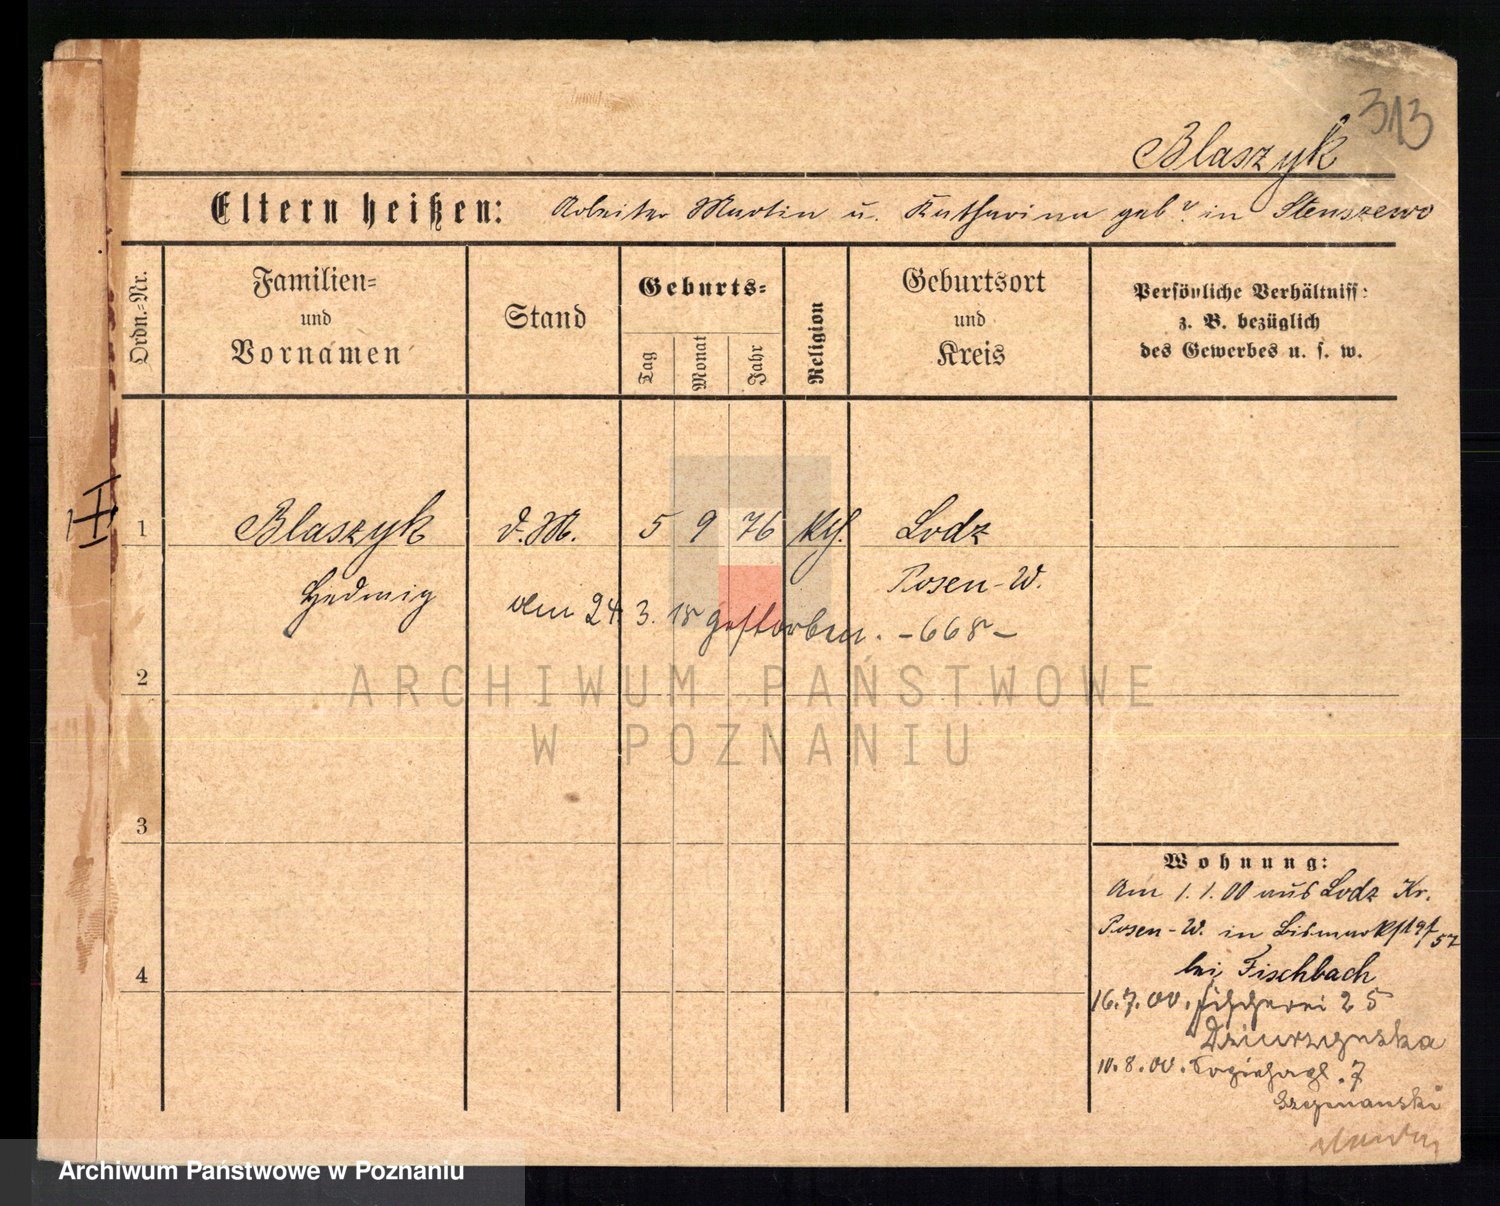 313
Blaszyk
Eltern heißen: Arbeiter Martin u. Katharina geb. in Stenszewo
Ordn.-Nr.
Familien-
und
Vornamen
Stand
Geburts-
Tag
Monat
Jahr
Religion
Geburtsort
und
Kreis
Persönliche Verhältniss:
z. B. bezüglich
des Gewerbes u. s. w.
III
1 Blaszyk d.M. 5 9 76 kth. Lodz
Hedwig Posen-W.
den 24. 3. 18 gestorben. -668-
2
3
4
Wohnung:
Am 1.1.00 aus Lodz Kr.
Posen-W. in Bismarkstr 57
bei Fischbach
16.7.00. Fischerei 25
Dziurzynska
10.8.00. 7
Szymanski
ARCHIWUM PAŃSTWOWE
W POZNANIU
Archiwum Państwowe w Poznaniu